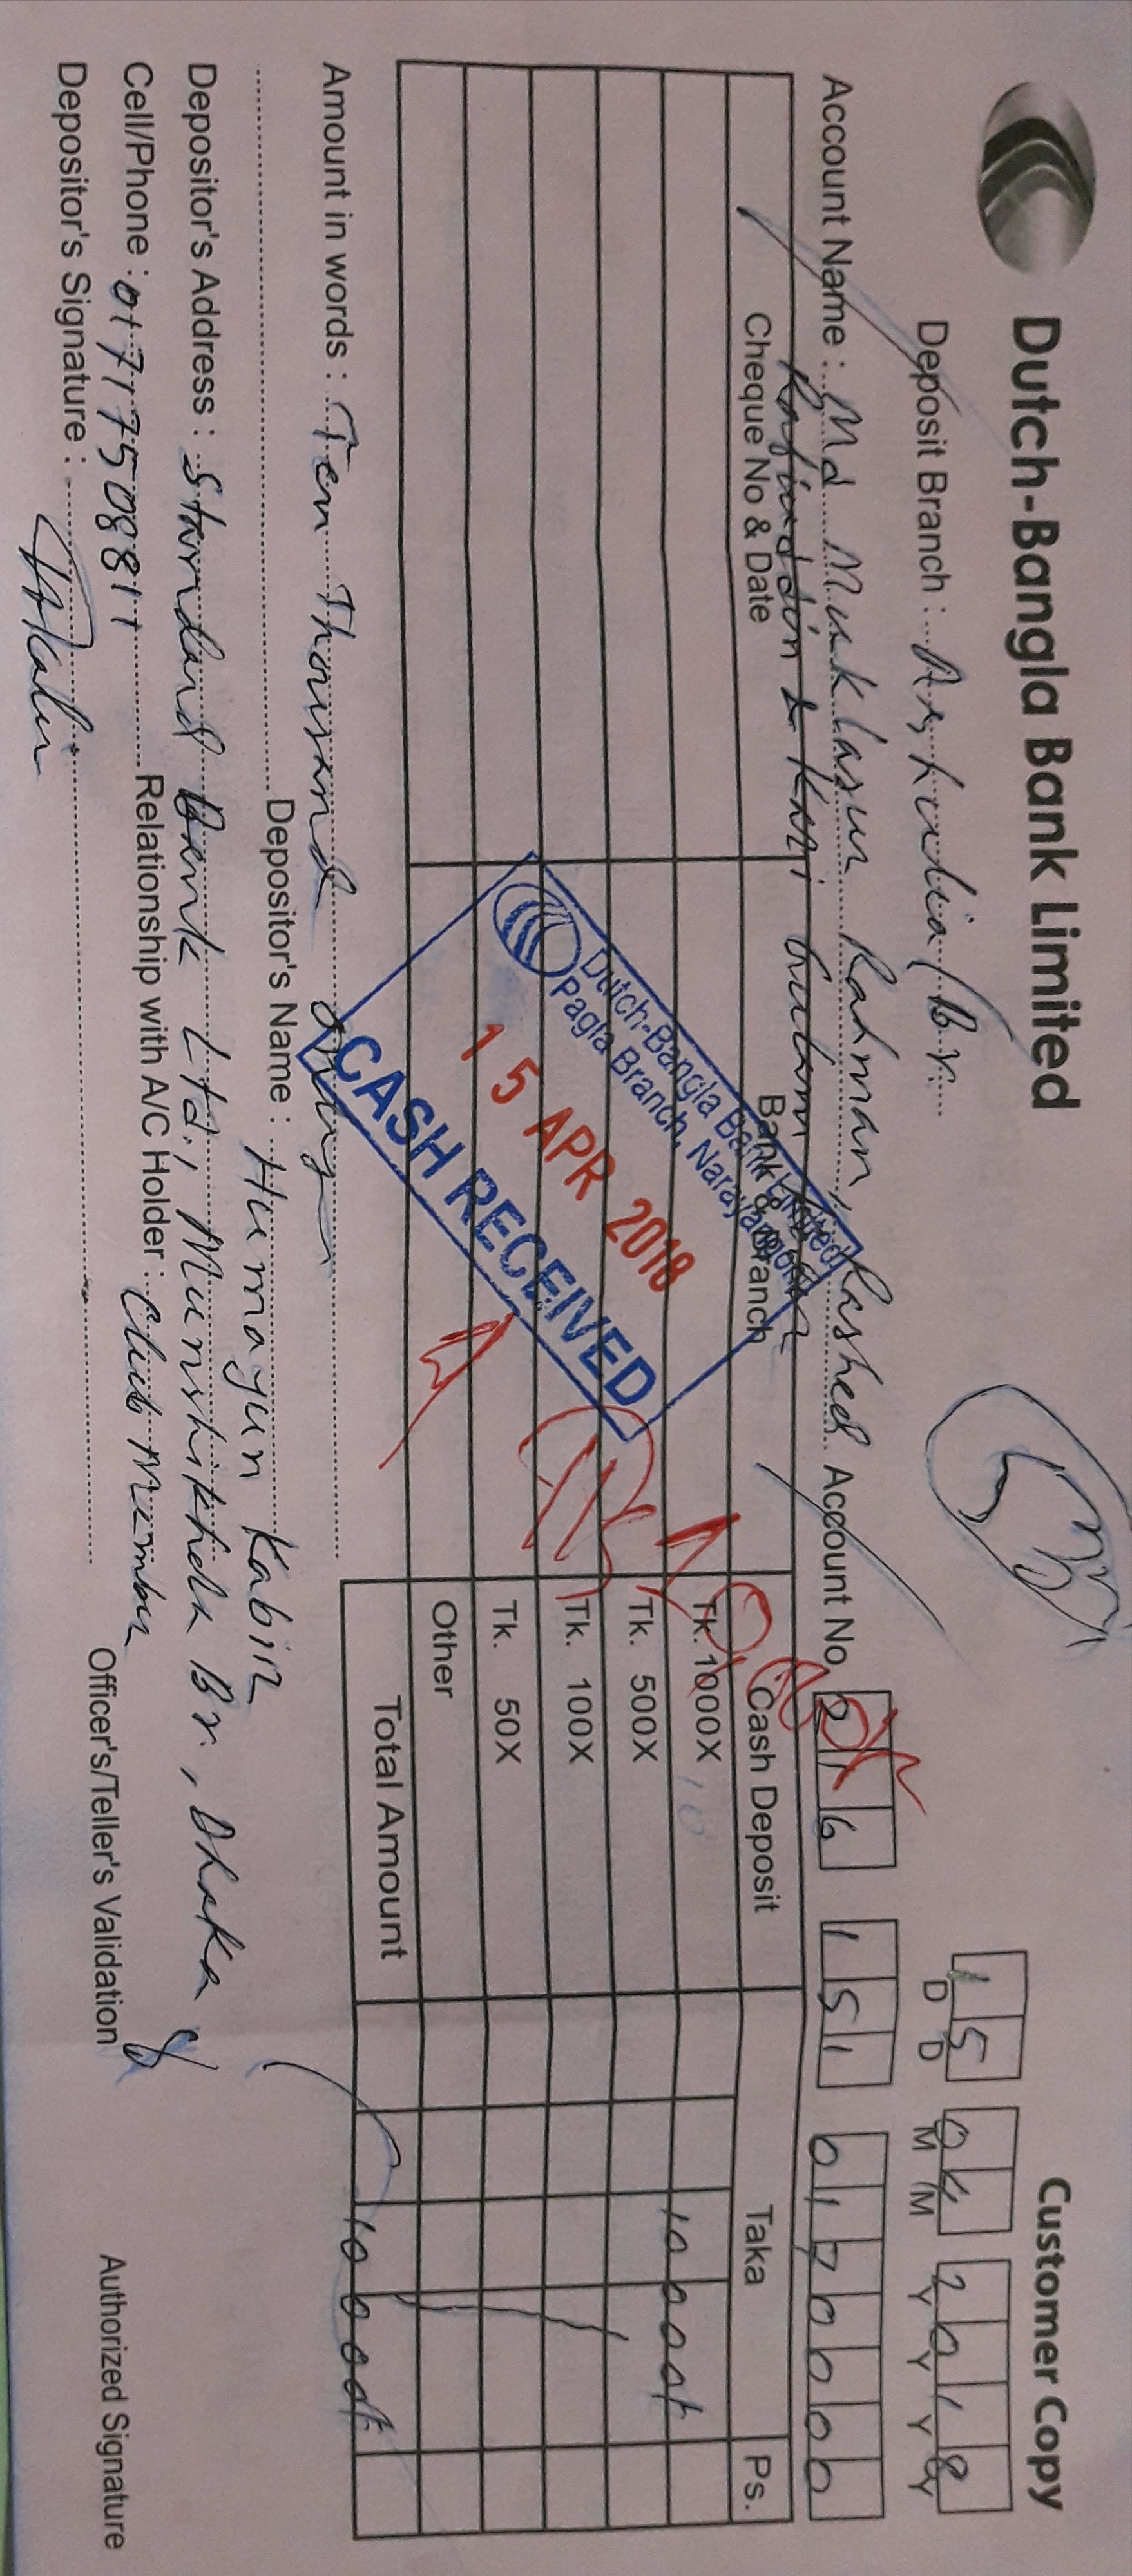 Dutch-Bangla Bank Limited
Customer Copy
Deposit Branch :
15 04 2018
D D M M Y Y Y Y
Account Name : Md Muklasur Rahman, Rashed Account No. 216 151 0170000
Cheque No & Date Bank & Branch Cash Deposit Taka Ps.
Tk. 1000X 10 10000/-
Tk. 500X
Tk. 100X
Tk. 50X
Other
Total Amount 10000/-
Dutch-Bangla Bank Limited
Pagla Branch, Narayangonj
15 APR 2018
CASH RECEIVED
Amount in words : Ten Thousand only
Depositor's Name : Humayun Kabir
Depositor's Address : Standard Bank Ltd., Munshikhola Br, Dhaka
Cell/Phone : 01717750811 Relationship with A/C Holder : Club Member
Depositor's Signature :
Officer's/Teller's Validation
Authorized Signature